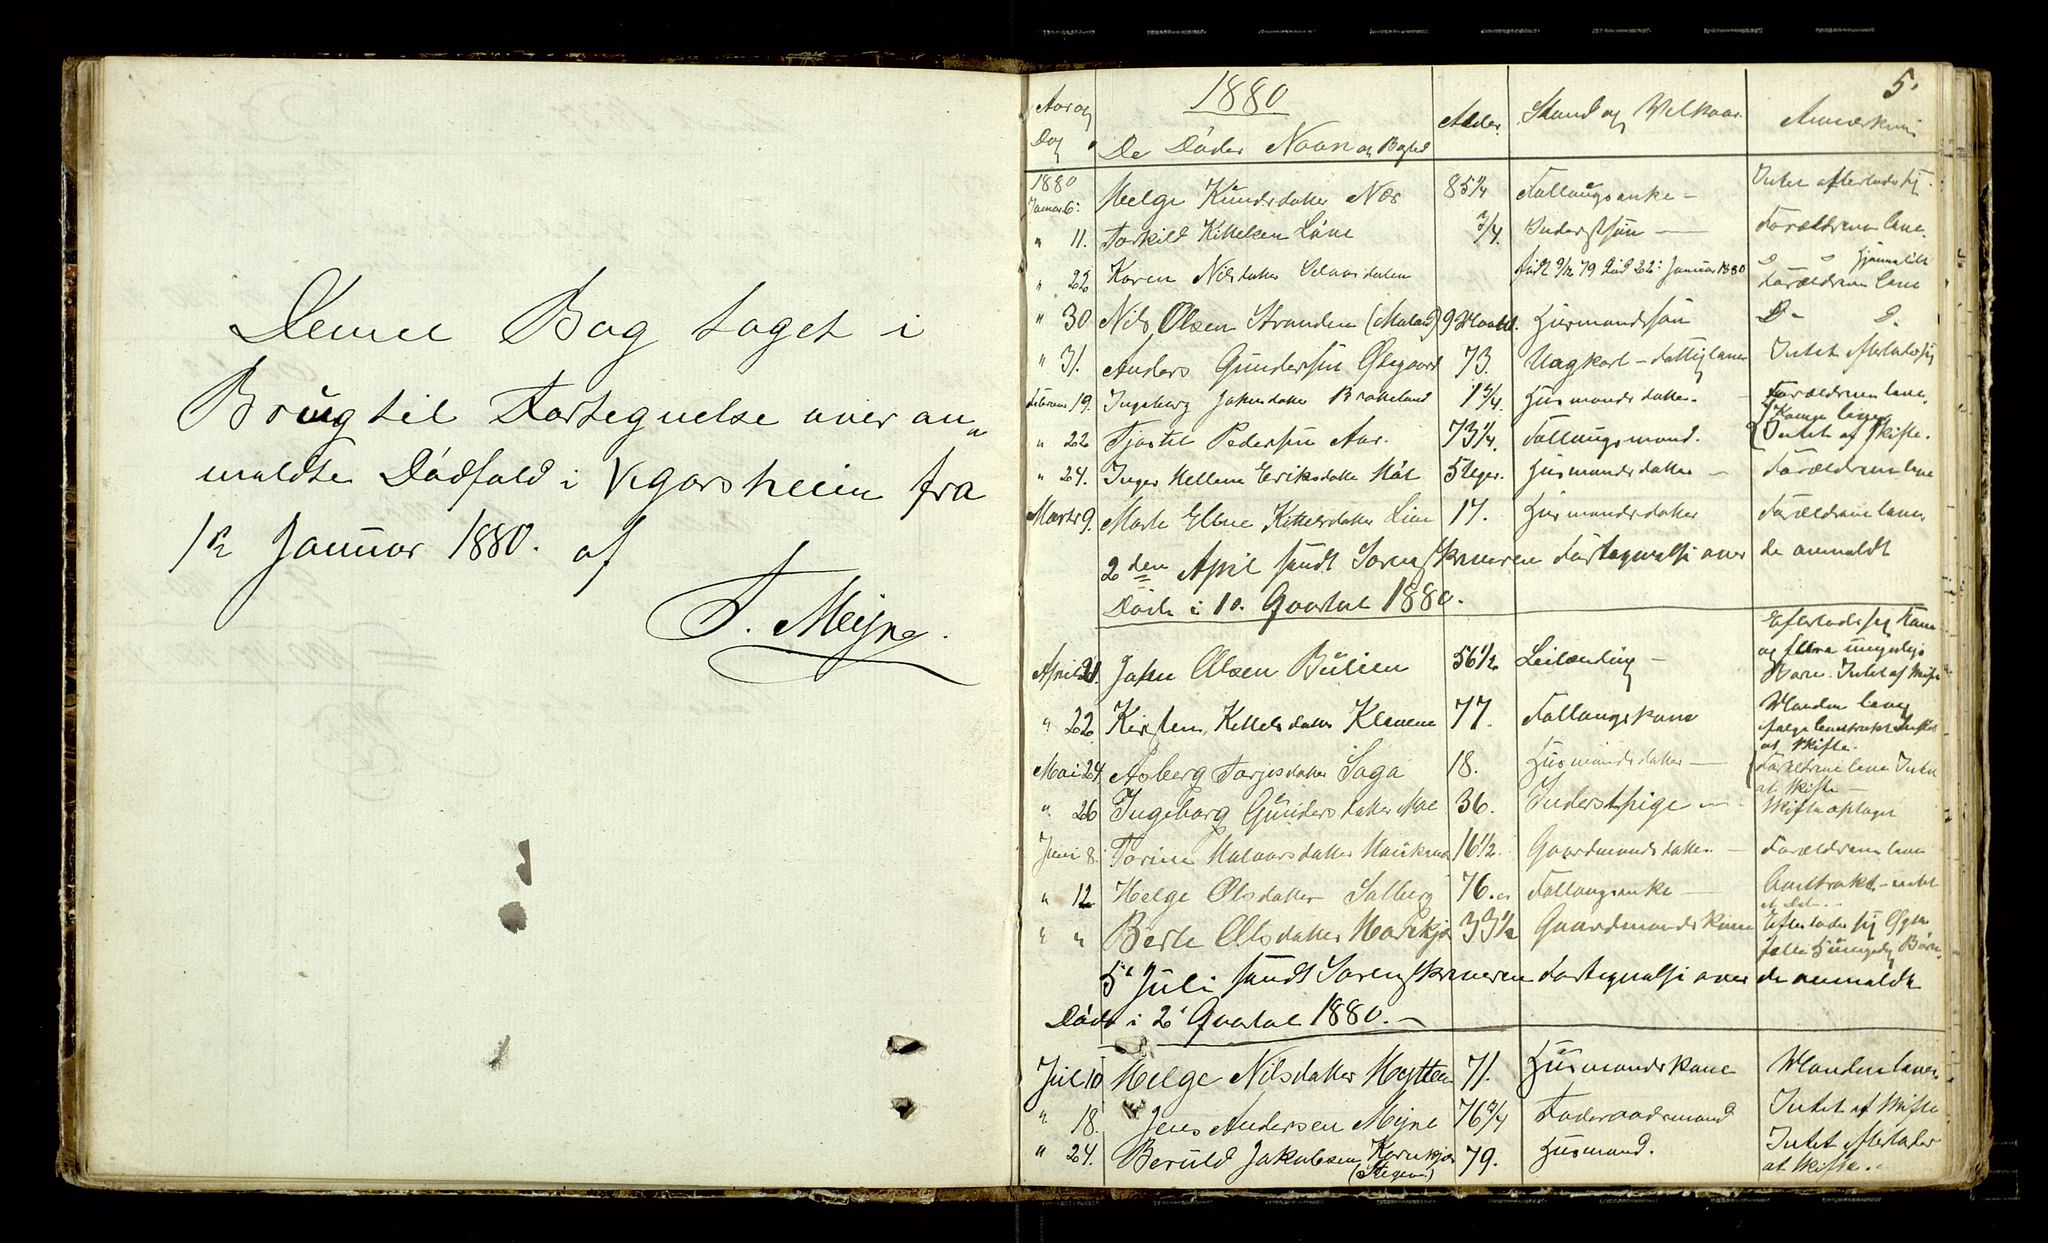 Denne Bog taget i
Brug til Fortegnelse over an„
meldte Dødsfald i Vegarsheien fra
1ste Januar 1880. af
T. Mejne.
5.
Aar og Dag
1880
De Dødes Navn og Bosted
Alder
Stand og Velkaar
Anmærkning
1880 Januar 6. Helge Knudsdatter Nes 85 1/4 Follaugsenke - Intet efterlode sig
" 11. Torkild Kittelsen Line 3/4. Inderstsøn - Forældrene leve.
" 22 Karen Nilsdatter født 9/12 79 død 22. Januar 1880 Forældrene leve
" 30 Nils Olsen Stranden 9 Maaned. Husmandssøn D- D.
" 31. Anders Gundersen Østgaard 73. Ungkarl - Fattiglem Intet efterlode sig
Februar 19. Ingeborg Johnsdatter Brekeland 1 3/4. Husmandsdatter. - Forældrene leve.
" 22 Tjøstel Pedersen Aas. 73 1/4. Follaugsmand. Konen lever Intet at skifte.
" 24. Inger Hellene Eriksdatter 5 Uger. Husmandsdatter - Forældrene leve
Marts 9. Marte Elene Kittelsdatter Line 17. Husmandsdatter Forældrene lever
2den April sendt Sorenskriveren Fortegnelse over de anmeldte
Døde i 1ste Qvartal 1880.
April 21. John Olsen Bulien 56 1/2 Leilænding - Efterlode sig Kone
og flere umyndige
Børn. Intet at skifte
" 22. Kirsten Kittelsdatter Klevene 77. Follaugskone Manden lever
ifølge Contrakt Intet
at skifte.
Mai 24. Asberg Torjesdatter Haga 18. Husmandsdatter - Forældrene leve Intet
at skifte -
" 26 Ingeborg Gundersdatter Moe 36. Inderstpige - Skifte optaget
Juni 8. Torine Halvorsdatter 16 1/2. Gaardmandsdatter - Forældrene leve
" 12 Helge Olsdatter Solberg 76. Follaugsenke - Contrakt - intet
" " Berte Olsdatter 33 1/2 Gaardmandskone Efterlader sig Ægte
fælle 5 umyndig Børn.
5te Juli sendt Sorenskriveren Fortegnelse over de anmeldte
Døde i 2det Qvartal 1880. -
Juli 10 Helge Nilsdatter Hytten 71. Husmandskone Manden lever
" 18. Jens Andersen Mejne 76 3/4 Føderaadsmand Intet at skifte
" 24. Beruld Jakobsen 79. Husmand. Intet efterlader
at skifte.